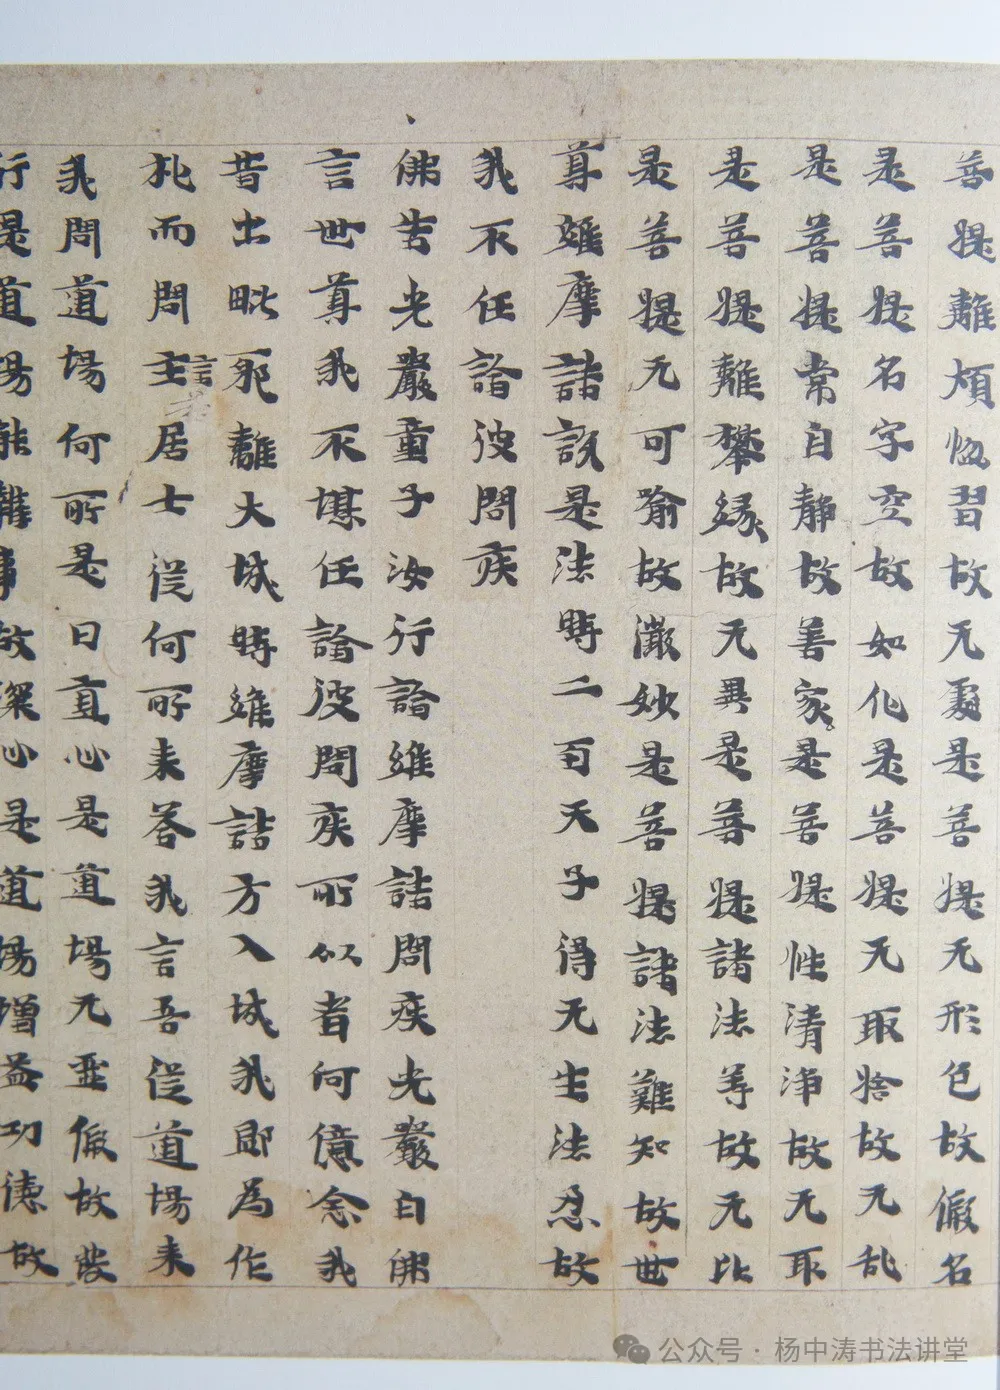 菩提離煩惱習故无處是菩提无形色故假名
是菩提名字空故如化是菩提无取捨故无乱
是菩提常自静故善家是菩提性清淨故无取
是菩提離攀緣故无異是菩提諸法等故无比
是菩提无可喻故微妙是菩提諸法難知故世
尊維摩詰說是法時二百天子得无生法忍故
我不任詣彼問疾
佛告光嚴童子汝行詣維摩詰問疾光嚴白佛
言世尊我不堪任詣彼問疾所以者何憶念我
昔出毗耶離大城時維摩詰方入城我即為作
礼而問言居士從何所来荅我言吾從道場来
我問道場何所是曰直心是道場无虛假故發
行是道場能辦事故深心是道場增益功德故
公众号 · 杨中涛书法讲堂